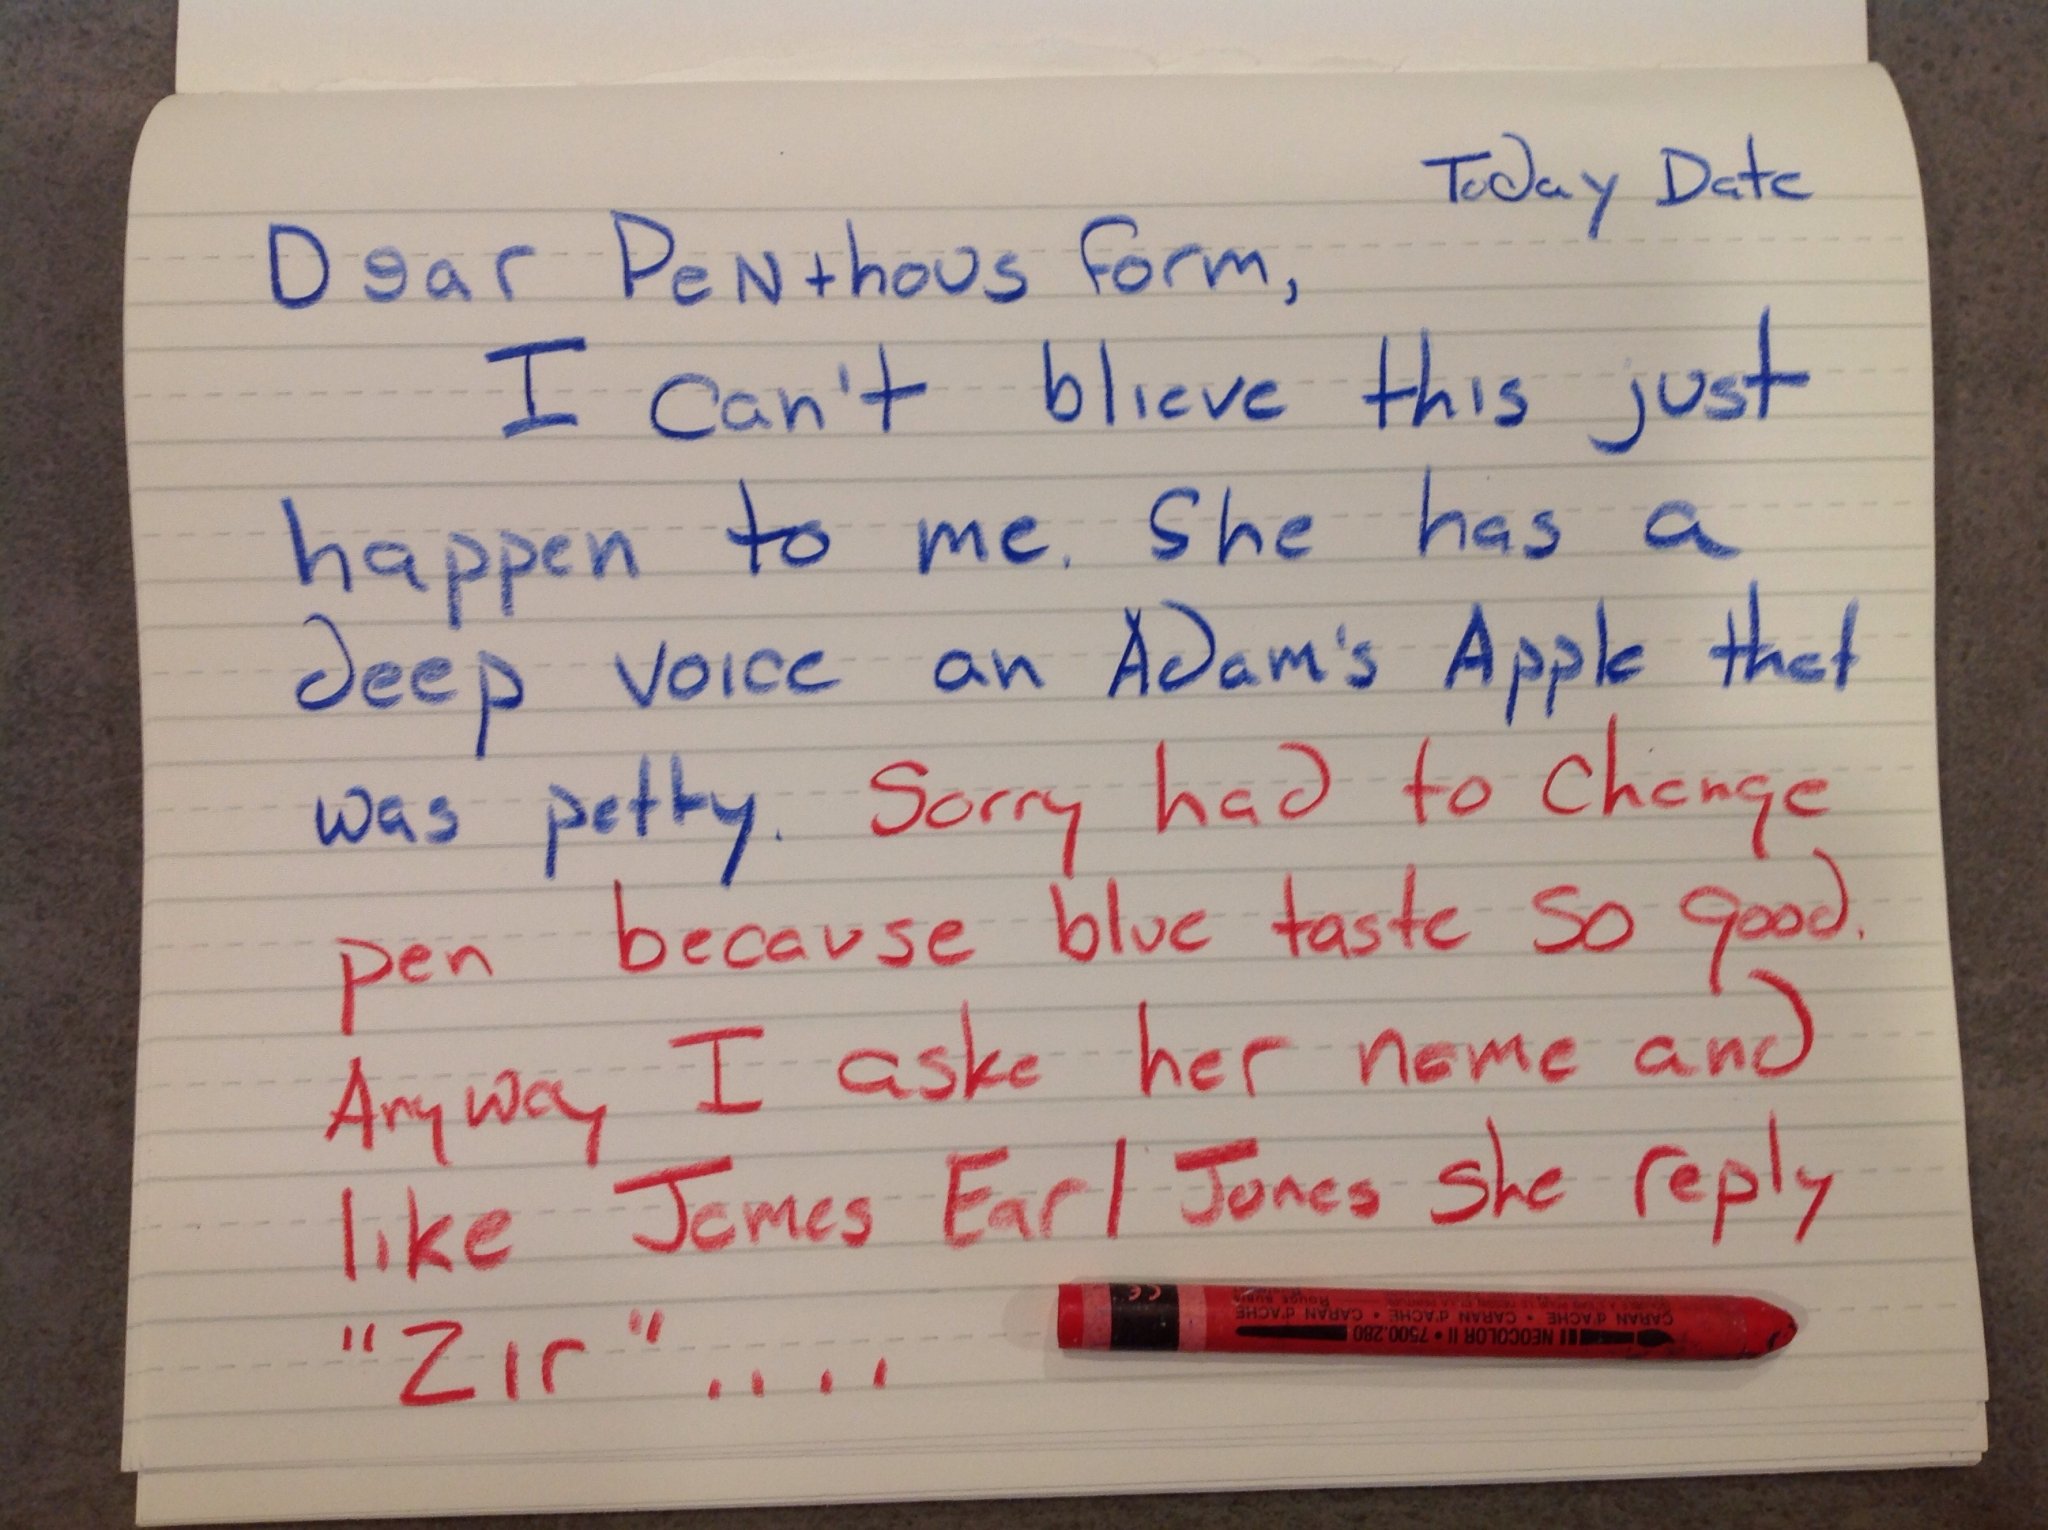 Today Date
Dear PeNthous form,
I Can't blieve this just
happen to me. She has a
deep voice an Adam's Apple that
was petty. Sorry had to Change
pen because blue taste so good.
Anyway I aske her name and
like James Earl Jones she reply
"Zir"....
CARAN d'ACHE • CARAN d'ACHE • CARAN d'ACHE
NEOCOLOR II • 7500.280
CE